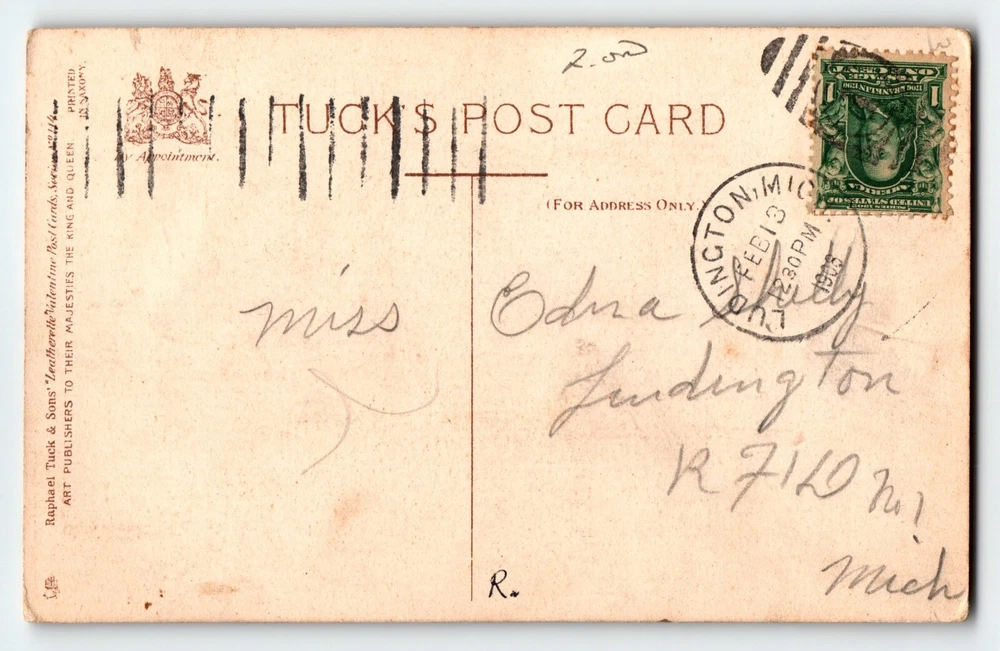 2.00
TUCK'S POST CARD
By Appointment.
(FOR ADDRESS ONLY.)
LUDINGTON, MICH.
FEB 13
12:30PM
1908
ONE CENT
POSTAGE
1706 FRANKLIN 1790
1 1
SERIES 1902
UNITED STATES OF
AMERICA
Miss Edna
Ludington
R F D No 1
Mich
R.
Raphael Tuck & Sons' "Leatherette" Valentine Post Cards, Series
ART PUBLISHERS TO THEIR MAJESTIES THE KING AND QUEEN
PRINTED
IN SAXONY.